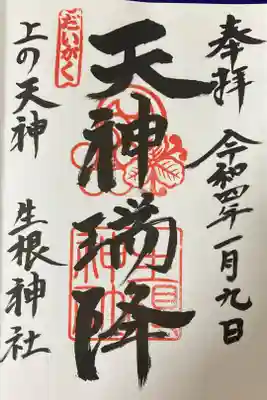 奉拝
令和四年一月九日
天神瑞降
だいがく
上の天神 生根神社